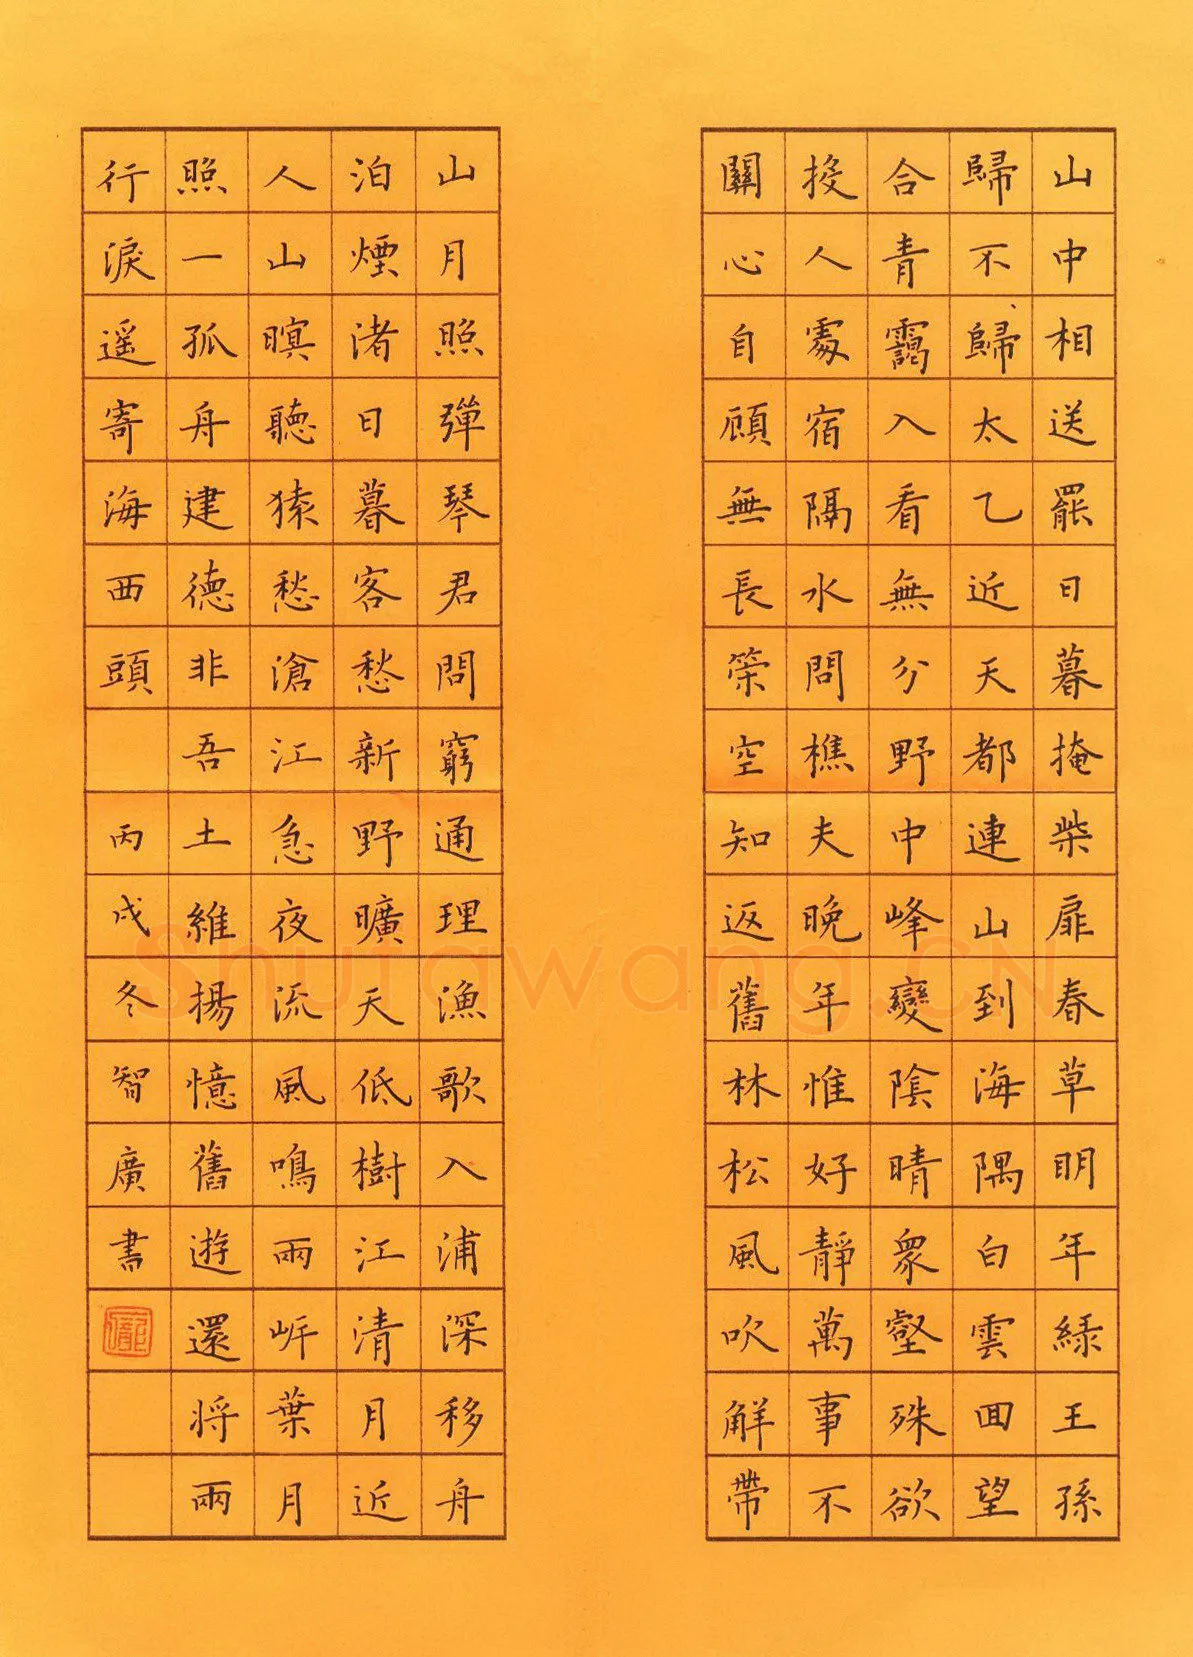 山中相送罷日暮掩柴扉春草明年緑王孫
歸不歸太乙近天都連山到海隅白雲回望
合青靄入看無分野中峰變陰晴衆壑殊欲
投人處宿隔水問樵夫晚年惟好靜萬事不
關心自顧無長策空知返舊林松風吹解帶
山月照彈琴君問窮通理漁歌入浦深移舟
泊煙渚日暮客愁新野曠天低樹江清月近
人山暝聽猿愁滄江急夜流風鳴兩岸葉月
照一孤舟建德非吾土維揚憶舊遊還将兩
行淚遥寄海西頭
丙戌冬智廣書
Shufawang.CN